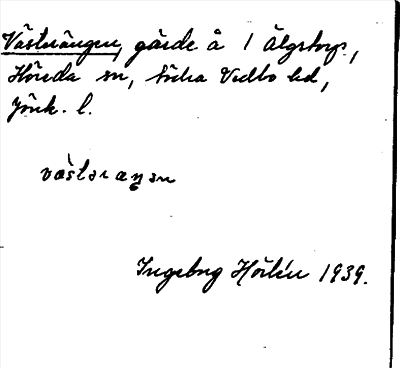 Västerängen, gärde å 1 Älgstorp,
Höreda sn, Södra Vedbo hd,
Jönk. l.
væ̀stəraŋən
Ingeborg Hörlén 1939.